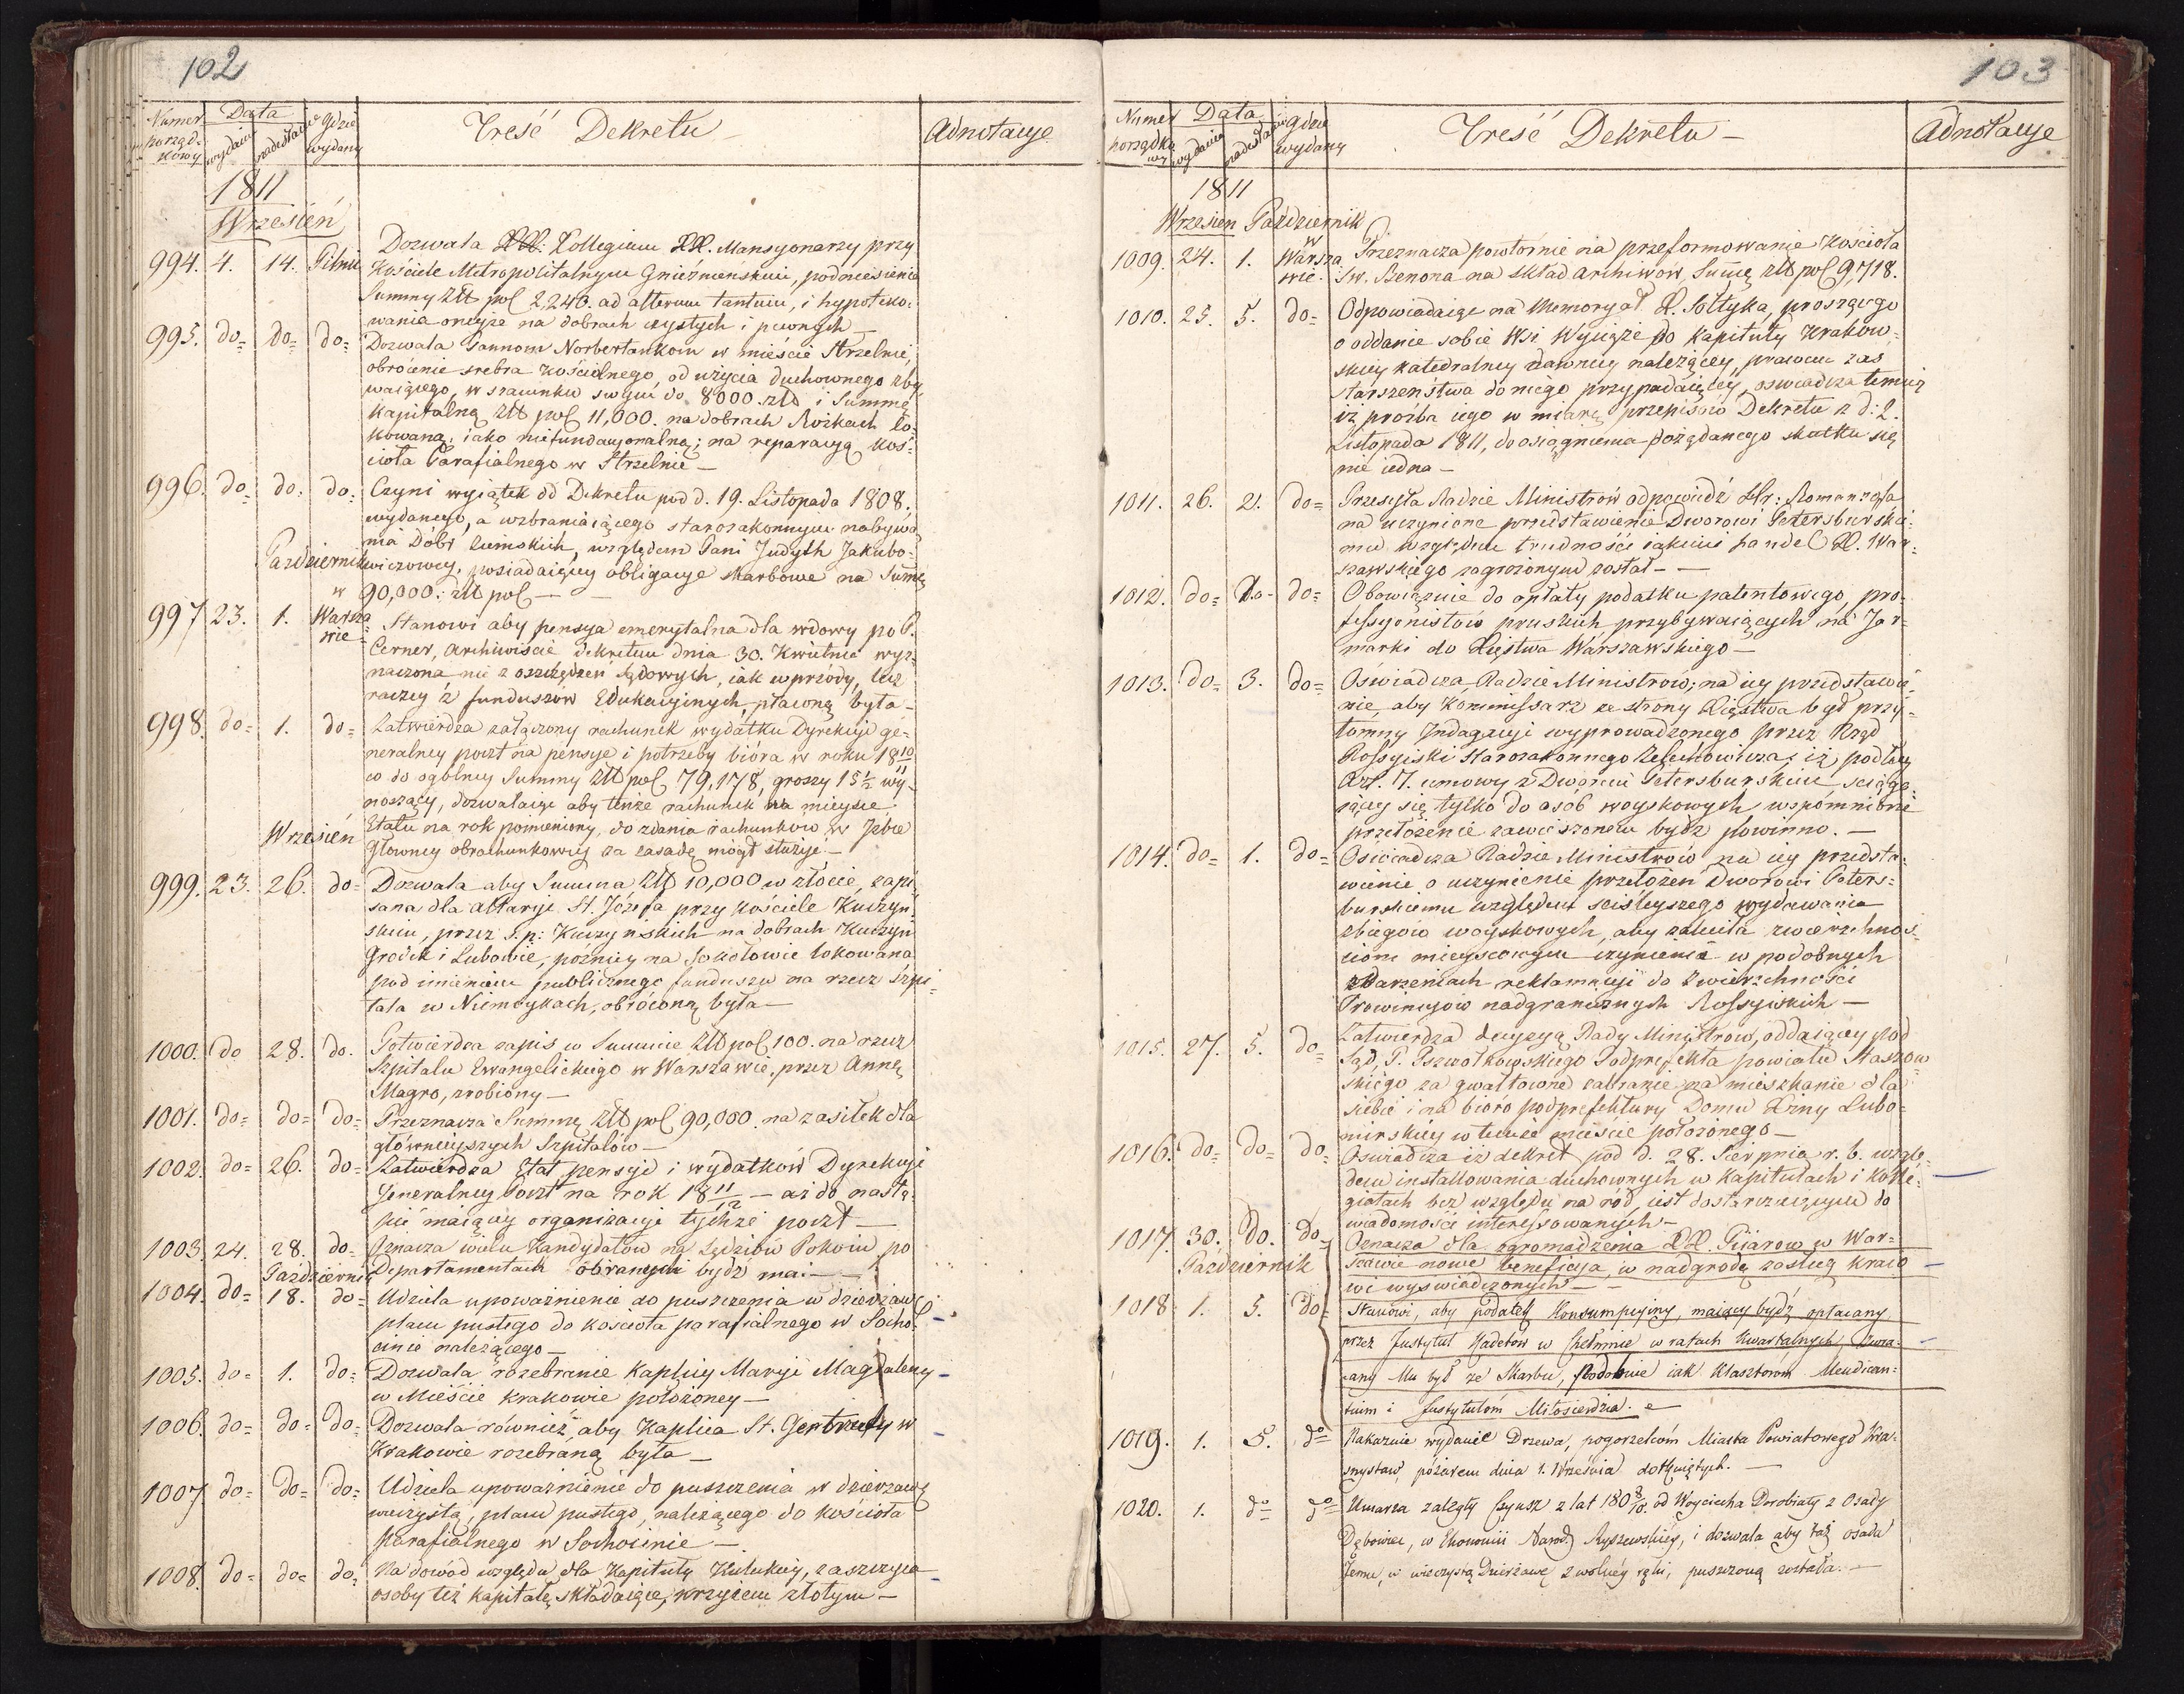 102
Numer porządkowy
Data
wydania
nadesłania
w gdzie wydany
Treść Dekretu
Adnotacye
1811
Wrzesień
994. 4. 14. Pilnic Dozwala XX: Kollegium XX. Mansyonarzy przy
Kościele Metropolitalnym Gnieznieńskim, podniesienie
Summy Złt pol 2,240. ad alterum tantum, i hypoteko-
wanie oneyże na dobrach czystych i pewnych —
995. do= do= do= Dozwala Pannom Norbertankom w mieście Strzelnie,
obrócenie srebra kościelnego, od użycia duchownego zby-
waiącego, w szacunku swym do 8000. złt i Summę
Kapitalną Złt pol 11,000. na dobrach Rożkach lo-
kowaną, iako niefundacyonalną; na reparacyą koś-
cioła Parafialnego w Strzelnie —
996. do do. do. Czyni wyiątek od Dekretu pod d. 19. Listopada 1808.
wydanego, a wzbraniaiącego starozakonnym nabywa-
nia Dóbr ziemskich, względem Pani Judyth Jakubo-
Pazdziernik wiczowey, posiadaiącey obligacye skarbowe na Summę
90,000: złt pol —
997 23. 1. w Warszawie Stanowi aby pensya emerytalna dla wdowy po ś.
Cerner, Archiwiście dekretem dnia 30. Kwietnia wyz-
naczona nie z oszczędzeń sądowych, iak wprzódy, lecz
raczey z funduszów Edukacyinych, płacona była —
998. do= 1. do= Zatwierdza załączony rachunek wydatku Dyrekcyi ge-
neralney poczt na pensye i potrzeby bióra w roku 18 10/11
co do ogolney Summy Złt pol 79,178, groszy 15 ½ wy-
noszący, dozwalaiąc aby tenże rachunek na mieysce
Etatu na rok pomieniony, do zdania rachunków w Izbie
Wrzesień Głowney obrachunkowey za zasadę mógł służyć —
999. 23. 26. do= Dozwala aby Summa Złt 10,000 w złocie, zapi-
sana dla Altaryi St. Józefa przy kościele Kuczyń-
skim, przez ś. p: Kuczyńskich na dobrach Kuczyn
Grodek i Lubowie, pozniey na Sokołowie lokowana
pod imieniem publicznego funduszu na rzecz Szpi-
tala w Niemoykach, obróconą była —
1000. do 28. do. Potwierdza zapis w Summie Złt pol 100. na rzecz
Szpitalu Ewangelickiego w Warszawie, przez Annę
Magro, zrobiony —
1001. do= do= do= Przeznacza Summę Złt pol 90,000. na zasiłek dla
głownieyszych Szpitalów —
1002. do= 26. do= Zatwierdza Etat pensyi i wydatków Dyrekcyi
Generalney Poczt na rok 18 11/12 — aż do nastą-
pić maiącey organizacyi tychże poczt —
1003. 24. 28. do= Oznacza wielu Kandydatów na Sędziów Pokoiu po
Październik Departamentach obranymi bydź mai —
1004. do= 18. do= Udziela upoważnienie do puszczenia w dzierżawę
placu pustego do kościoła parafialnego w Socho-
cinie należącego —
1005. do= 1. do= Dozwala rozebranie Kaplicy Maryi Magdaleny
w Mieście Krakowie położoney —
1006. do= do= do= Dozwala również, aby Kaplica St. Gertrudy w
Krakowie rozebraną była —
1007 do= do= do= Udziela upoważnienie do puszczenia w dzierżawę
wieczystą, placu pustego, należącego do kościoła
Parafialnego w Sochocinie —
1008. do= do= do= Na dowód względu dla Kapituły Kieleckiey, zaszczyca
osoby też kapitułę składaiące, krzyżem złotym —
103
Numer porządkowy
Data
wydania
nadesłania
w gdzie wydany
Treść Dekretu —
Adnotacye
1811
Wrzesien Październik
1009. 24. 1. w Warszawie. Przeznacza powtórnie na przeformowanie Kościoła
Sw. Benona na skład archiwów, Summę złt pol 9,718.
1010. 25. 5. do= Odpowiadaiąc na Memoryał X. Sołtyka, proszącego
o oddanie sobie Wsi Wyciąże do Kapituły Krakow-
skiey katedralney dawniey należącey, prawem zas
starszeństwa do niego przypadaiącey, oswiadcza temuż
iż prośba iego w miarę przepisów Dekretu z d: 2.
Listopada 1811, do osiągnienia pożądanego skutku się
nie iedna —
1011. 26. 21. do= Przesyła Radzie Ministrów odpowiedź Hr: Romanzofa
na uczynione przedstawienie Dworowi Petersburski-
mu względem trudności iakiemi handel X. War-
szawskiego zagrożonym został —
1012. do= do- do= Obowiązuie do opłaty podatku patentowego, pro-
fessyonistów pruskich przybywaiących na Jar-
marki do Xięstwa Warszawskiego —
1013. do= 3. do= Oświadcza, Radzie Ministrów; na iey przedstawie-
nie, aby Kommissarz ze strony Xięstwa był przy-
tomny Indagacyi wyprowadzonego przez Rząd
Rossyiski Starozakonnego Zelechowicza, iż podług
Art. 7. umowy z Dworem Petersburskim, sciąga-
iącey się tylko do osób woyskowych wspomnione
przełożenie zawieszonem bydź powinno. —
1014. do= 1. do= Oświadcza Radzie Ministrów na iey przedsta-
wienie o uczynienie przełożeń Dworowi Peters-
burskiemu względem scisleyszego wydawania
zbiegów woyskowych, aby zaleciła zwierzchnos-
ciom mieyscowym czynienie w podobnych
zdarzeniach reklamacyi do Zwierzchności
Prowincyów nadgranicznych Rossyyskich —
1015. 27. 5. do= Zatwierdza decyzyą Rady Ministrów, oddaiącey pod
Sąd, P. Pszwołkowskiego Podprefekta powiatu Staszow-
skiego za gwałtowne zabranie na mieszkanie dla
siebie i na bióro podprefektury Domu Xżny Lubo-
mirskiey w temże mieście położonego —
1016. do= do= do= Oswiadcza iż dekret pod d. 28. Sierpnia r. b. wzglę-
dem installowania duchownych w Kapitułach i Kolle-
giatach bez względu na ród, iest dostarczaiącym do
wiadomości interessowanych —
1017. 30. do. do Oznacza dla zgromadzenia XX. Piiarow w War-
Październik szawie nowe beneficya, w nadgrodę zasług kraio-
wi wyswiadczonych —
1018. 1. 5. do= Stanowi, aby podatek Konsumpcyiny, maiący bydź opłacany
przez Instytut Kadetów w Chełmnie w ratach kwartalnych, zwra-
cany Mu był ze Skarbu, podobnie iak Klasztorom Mendican-
tium i Instytutóm Miłosierdzia. —
1019. 1. 5. do= Nakazuie wydanie Drzewa, pogorzelcóm Miasta Powiatowego Kra-
snystaw, pożarem dnia 1. Września dotkniętych. —
1020. 1. do= do= Umarza zaległy Czynsz z lat 180 8/10. od Woyciecha Dorobiały z Osady
Dąbowiec, w Ekonomii Narod. Ryszewskiey, i dozwala aby taż osada
Jemu, w wieczystą Dzierżawę z wolney ręki, puszczoną została. —